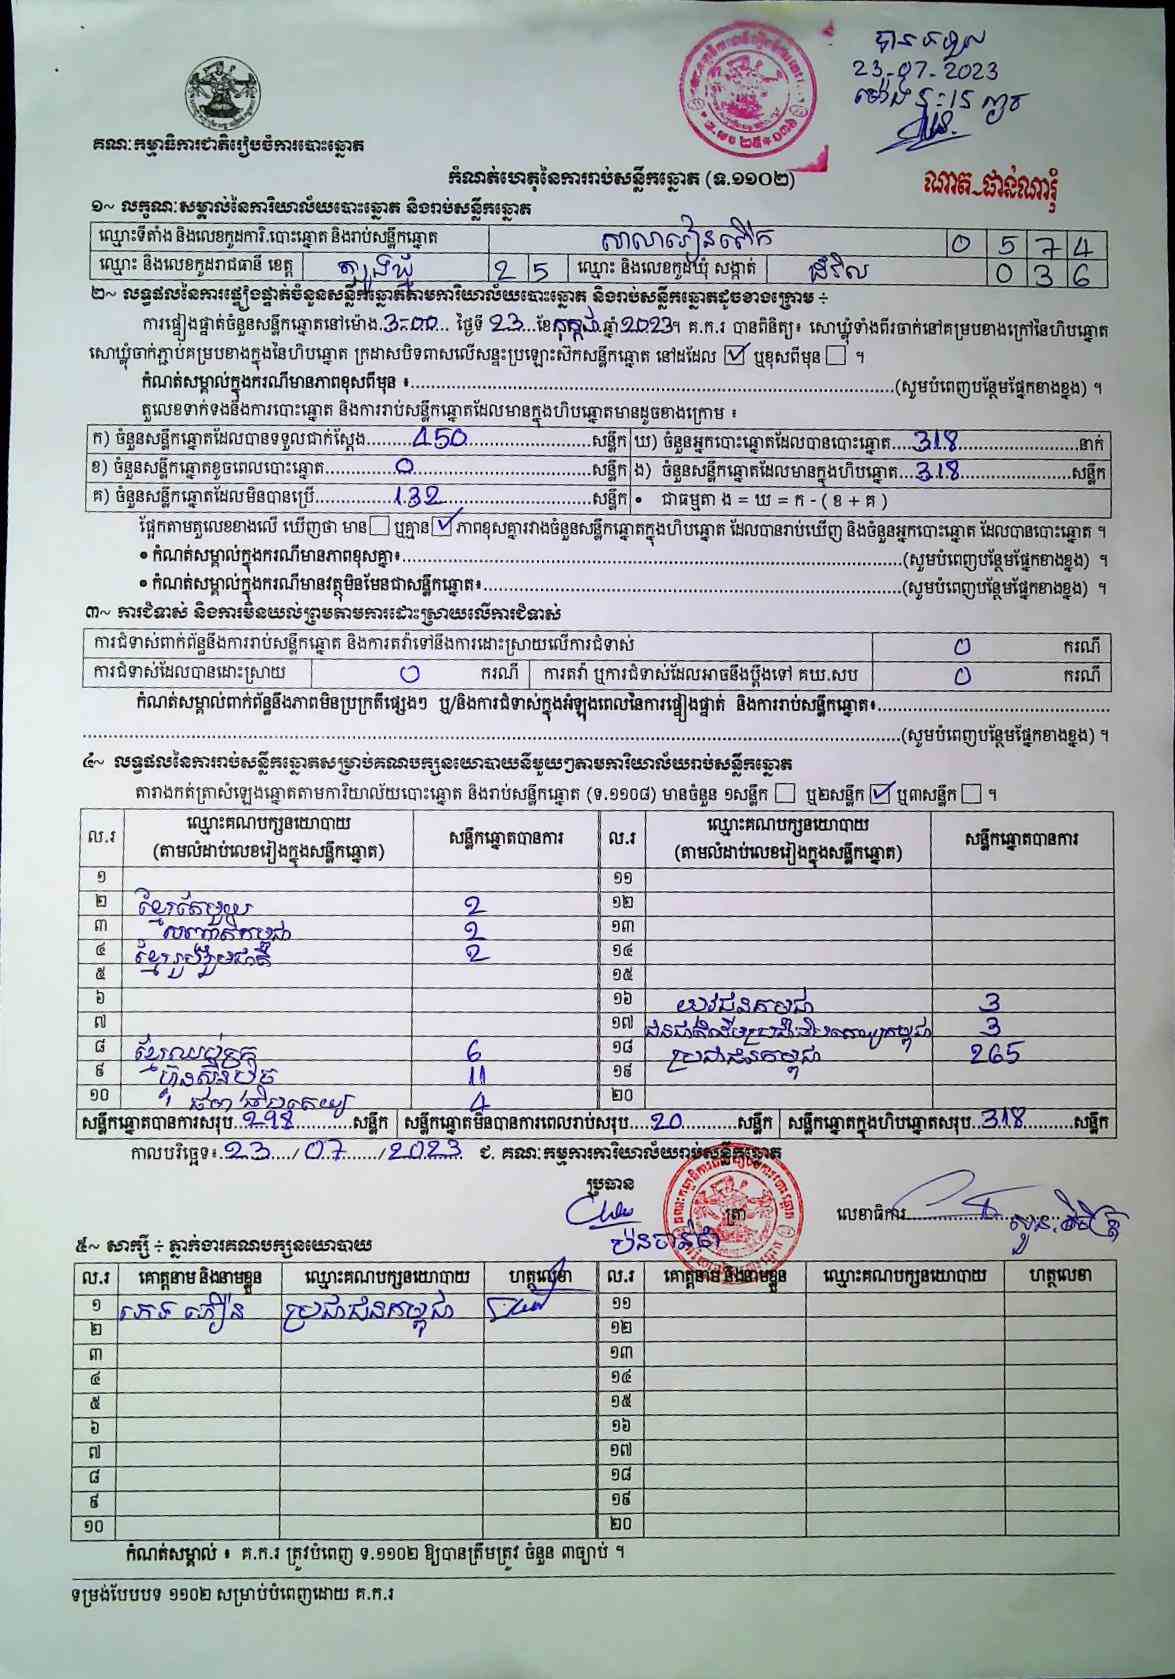 បានទទួល
23-07-2023
ម៉ោង 5:15 ល្ងាច
គណៈកម្មាធិការជាតិរៀបចំការបោះឆ្នោត
កំណត់ហេតុនៃការរាប់សន្លឹកឆ្នោត (ទ.១១០២)
ណាត ផាន់ណារុំ
១~ លក្ខណៈសម្គាល់នៃការិយាល័យបោះឆ្នោត និងរាប់សន្លឹកឆ្នោត
ឈ្មោះទីតាំង និងលេខកូដការិ.បោះឆ្នោត និងរាប់សន្លឹកឆ្នោត សាលារៀន 0 5 7 4
ឈ្មោះ និងលេខកូដរាជធានី ខេត្ត ត្បូងឃ្មុំ 2 5 ឈ្មោះ និងលេខកូដឃុំ សង្កាត់ 0 3 6
២~ លទ្ធផលនៃការផ្ទៀងផ្ទាត់ចំនួនសន្លឹកឆ្នោតតាមការិយាល័យបោះឆ្នោត និងរាប់សន្លឹកឆ្នោតដូចខាងក្រោម ៖
ការផ្ទៀងផ្ទាត់ចំនួនសន្លឹកឆ្នោតនៅម៉ោង.3:00... ថ្ងៃទី 23.ខែកក្កដាឆ្នាំ2023។ គ.ក.រ បានពិនិត្យ៖ សោឃ្លុំទាំងពីរចាក់នៅគម្របខាងក្រៅនៃហិបឆ្នោត
សោឃ្លុំចាក់ភ្ជាប់គម្របខាងក្នុងនៃហិបឆ្នោត ក្រដាសបិទពាសលើសន្ទះប្រឡោះស៊កសន្លឹកឆ្នោត នៅដដែល ☑ ឬខុសពីមុន ☐ ។
កំណត់សម្គាល់ក្នុងករណីមានភាពខុសពីមុន ៖.....(សូមបំពេញបន្ថែមផ្នែកខាងខ្នង) ។
តួលេខទាក់ទងនឹងការបោះឆ្នោត និងការរាប់សន្លឹកឆ្នោតដែលមានក្នុងហិបឆ្នោតមានដូចខាងក្រោម ៖
ក) ចំនួនសន្លឹកឆ្នោតដែលបានទទួលជាក់ស្តែង.....450.....សន្លឹក ឃ) ចំនួនអ្នកបោះឆ្នោតដែលបានបោះឆ្នោត....318.....នាក់
ខ) ចំនួនសន្លឹកឆ្នោតខូចពេលបោះឆ្នោត.....0.....សន្លឹក ង) ចំនួនសន្លឹកឆ្នោតដែលមានក្នុងហិបឆ្នោត...318.....សន្លឹក
គ) ចំនួនសន្លឹកឆ្នោតដែលមិនបានប្រើ.....132.....សន្លឹក • ជាធម្មតា ង = ឃ = ក - ( ខ + គ )
ផ្អែកតាមតួលេខខាងលើ ឃើញថា មាន ☐ ឬគ្មាន ☑ ភាពខុសគ្នារវាងចំនួនសន្លឹកឆ្នោតក្នុងហិបឆ្នោត ដែលបានរាប់ឃើញ និងចំនួនអ្នកបោះឆ្នោត ដែលបានបោះឆ្នោត ។
• កំណត់សម្គាល់ក្នុងករណីមានភាពខុសគ្នា៖.....(សូមបំពេញបន្ថែមផ្នែកខាងខ្នង) ។
• កំណត់សម្គាល់ក្នុងករណីមានវត្ថុមិនមែនជាសន្លឹកឆ្នោត៖.....(សូមបំពេញបន្ថែមផ្នែកខាងខ្នង) ។
៣~ ការជំទាស់ និងការមិនយល់ព្រមតាមការដោះស្រាយលើការជំទាស់
ការជំទាស់ពាក់ព័ន្ធនឹងការរាប់សន្លឹកឆ្នោត និងការតវ៉ាទៅនឹងការដោះស្រាយលើការជំទាស់ 0 ករណី
ការជំទាស់ដែលបានដោះស្រាយ 0 ករណី ការតវ៉ា ឬការជំទាស់ដែលអាចនឹងប្តឹងទៅ គឃ.សប 0 ករណី
កំណត់សម្គាល់ពាក់ព័ន្ធនឹងភាពមិនប្រក្រតីផ្សេងៗ ឬ/និងការជំទាស់ក្នុងអំឡុងពេលនៃការផ្ទៀងផ្ទាត់ និងការរាប់សន្លឹកឆ្នោត៖.....
.....(សូមបំពេញបន្ថែមផ្នែកខាងខ្នង) ។
៤~ លទ្ធផលនៃការរាប់សន្លឹកឆ្នោតសម្រាប់គណបក្សនយោបាយនីមួយៗតាមការិយាល័យរាប់សន្លឹកឆ្នោត
តារាងកត់ត្រាសំឡេងឆ្នោតតាមការិយាល័យបោះឆ្នោត និងរាប់សន្លឹកឆ្នោត (ទ.១១០៨) មានចំនួន ១សន្លឹក ☐ ឬ២សន្លឹក ☑ ឬ៣សន្លឹក ☐ ។
ល.រ ឈ្មោះគណបក្សនយោបាយ (តាមលំដាប់លេខរៀងក្នុងសន្លឹកឆ្នោត) សន្លឹកឆ្នោតបានការ ល.រ ឈ្មោះគណបក្សនយោបាយ (តាមលំដាប់លេខរៀងក្នុងសន្លឹកឆ្នោត) សន្លឹកឆ្នោតបានការ
១ ១១
២ ខ្មែរតែមួយ 2 ១២
៣ សញ្ជាតិកម្ពុជា 2 ១៣
៤ ខ្មែររួបរួមជាតិ 2 ១៤
៥ ១៥
៦ ១៦ យុវជនកម្ពុជា 3
៧ ១៧ ជនជាតិដើមប្រជាធិបតេយ្យកម្ពុជា 3
៨ ខ្មែរឈប់ក្រ 6 ១៨ ប្រជាជនកម្ពុជា 265
៩ ហ៊្វុនស៊ិនប៉ិច 11 ១៩
១០ ផ្កាប្រជាធិបតេយ្យ 4 ២០
សន្លឹកឆ្នោតបានការសរុប.298.....សន្លឹក សន្លឹកឆ្នោតមិនបានការពេលរាប់សរុប....20.....សន្លឹក សន្លឹកឆ្នោតក្នុងហិបឆ្នោតសរុប..318.....សន្លឹក
កាលបរិច្ឆេទ៖..23.../07....../2023. ជ. គណៈកម្មការការិយាល័យរាប់សន្លឹកឆ្នោត
ប្រធាន ត្រា លេខាធិការ.....
៥~ សាក្សី ៖ ភ្នាក់ងារគណបក្សនយោបាយ
ល.រ គោត្តនាម និងនាមខ្លួន ឈ្មោះគណបក្សនយោបាយ ហត្ថលេខា ល.រ គោត្តនាម និងនាមខ្លួន ឈ្មោះគណបក្សនយោបាយ ហត្ថលេខា
១ ប្រជាជនកម្ពុជា ១១
២ ១២
៣ ១៣
៤ ១៤
៥ ១៥
៦ ១៦
៧ ១៧
៨ ១៨
៩ ១៩
១០ ២០
កំណត់សម្គាល់ ៖ គ.ក.រ ត្រូវបំពេញ ទ.១១០២ ឱ្យបានត្រឹមត្រូវ ចំនួន ៣ច្បាប់ ។
ទម្រង់បែបបទ ១១០២ សម្រាប់បំពេញដោយ គ.ក.រ